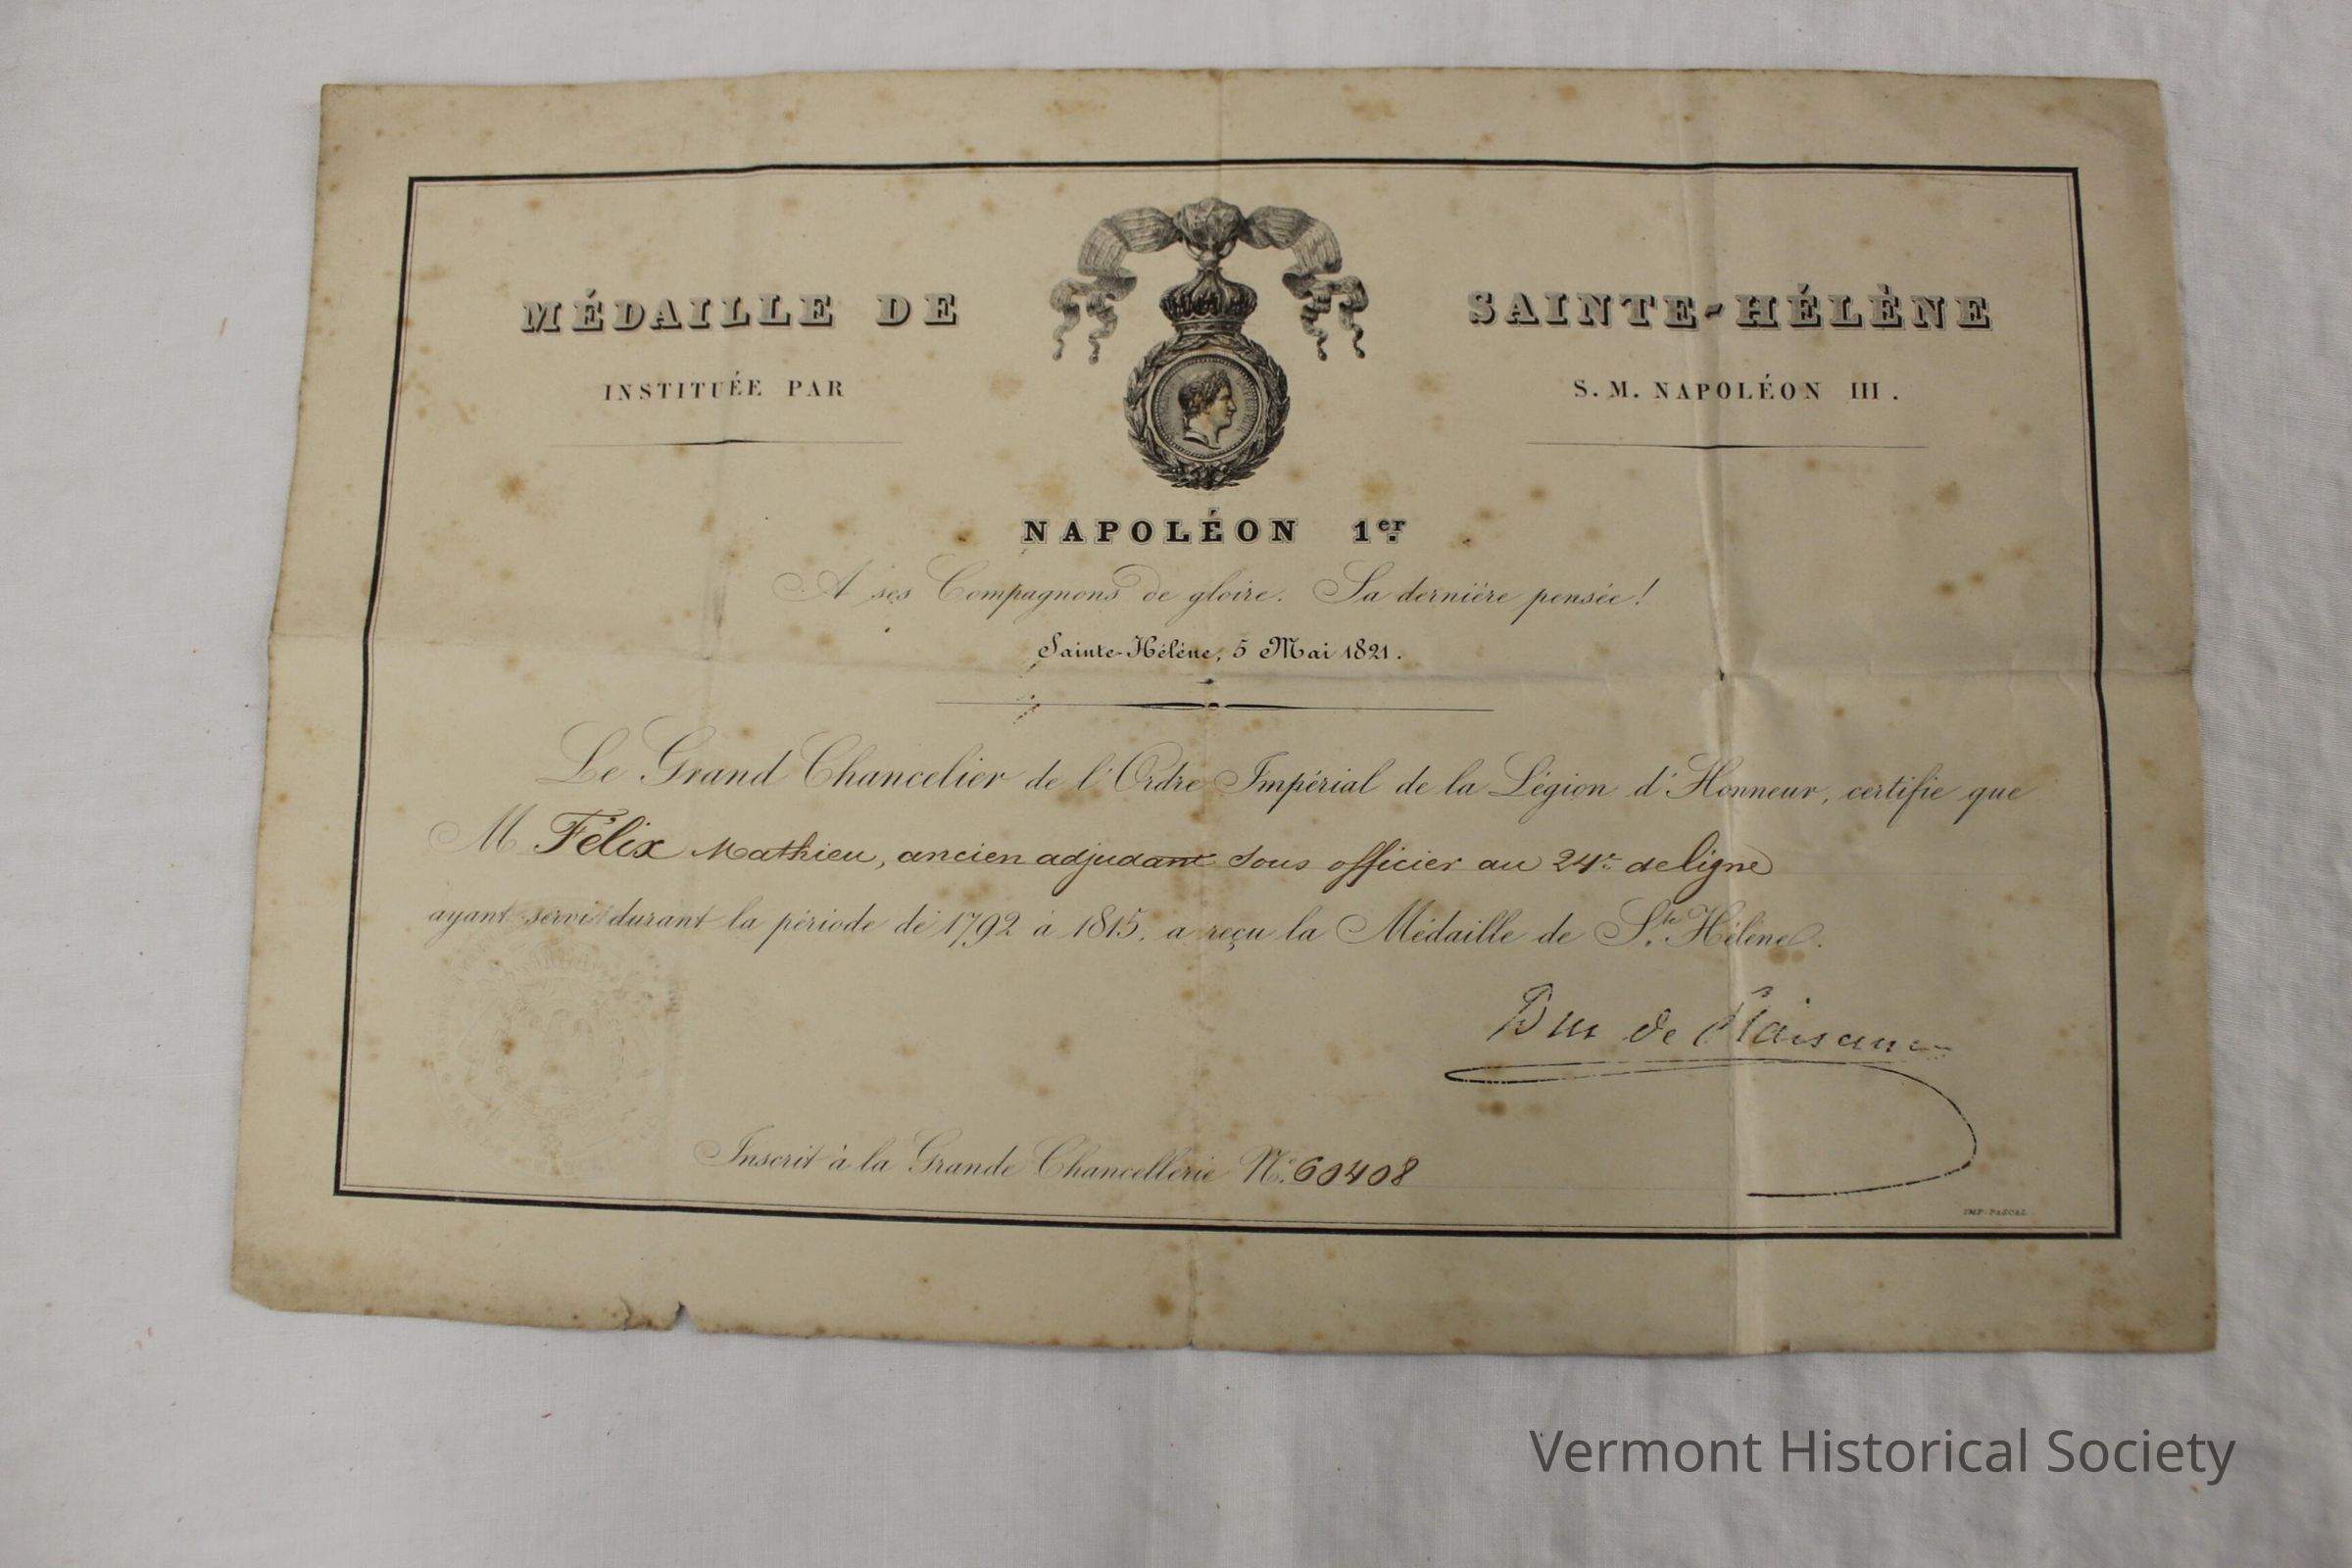 MÉDAILLE DE SAINTE-HÉLÈNE
INSTITUÉE PAR S. M. NAPOLÉON III.
NAPOLÉON 1er
A ses Compagnons de gloire. Sa dernière pensée!
Sainte-Hélène, 5 Mai 1821.
Le Grand Chancelier de l'Ordre Impérial de la Légion d'Honneur, certifie que
M Félix Mathieu, ancien adjudant Sous officier au 24e de ligne
ayant servi durant la période de 1792 à 1815, a reçu la Médaille de Ste Hélène.
Duc de Plaisance
Inscrit à la Grande Chancellerie No. 60408
IMP. PASCAL
Vermont Historical Society